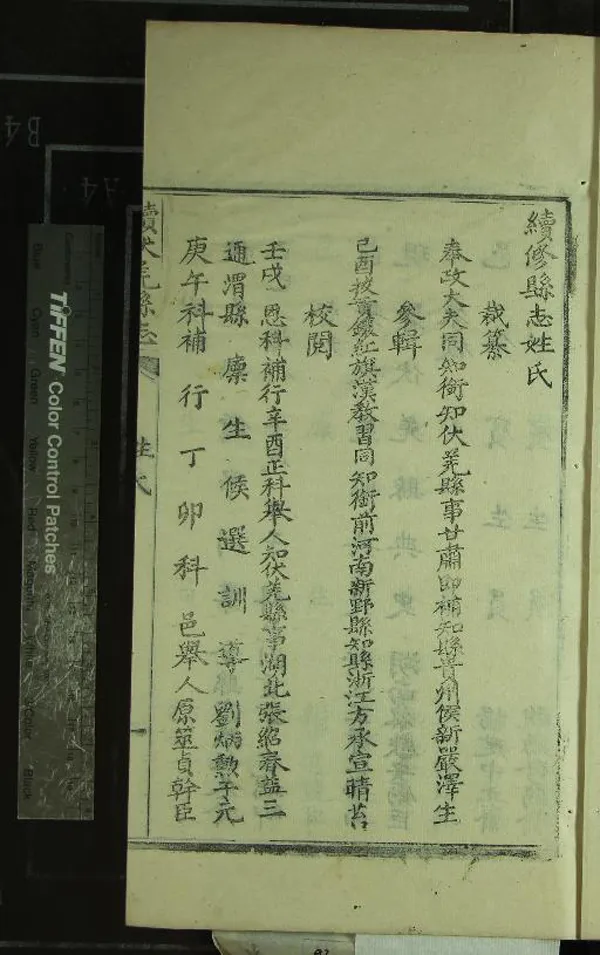 續修縣志姓氏
裁纂
奉政大夫同知銜知伏羌縣事甘肅即補知縣貴州侯新嚴澤生
參輯
己酉拔貢鑲紅旗漢教習同知銜前河南新野縣知縣浙江方承宣晴苔
校閱
壬戌恩科補行辛酉正科舉人知伏羌縣事湖北張紹齊益三
通渭縣廩生候選訓導劉炳勲子元
庚午科補行丁卯科邑舉人原莚貞幹臣
續伏羌縣志
姓氏
一
TIFFEN Color Control Patches
Blue
Cyan
Green
Yellow
Red
Magenta
Black
B4
A4